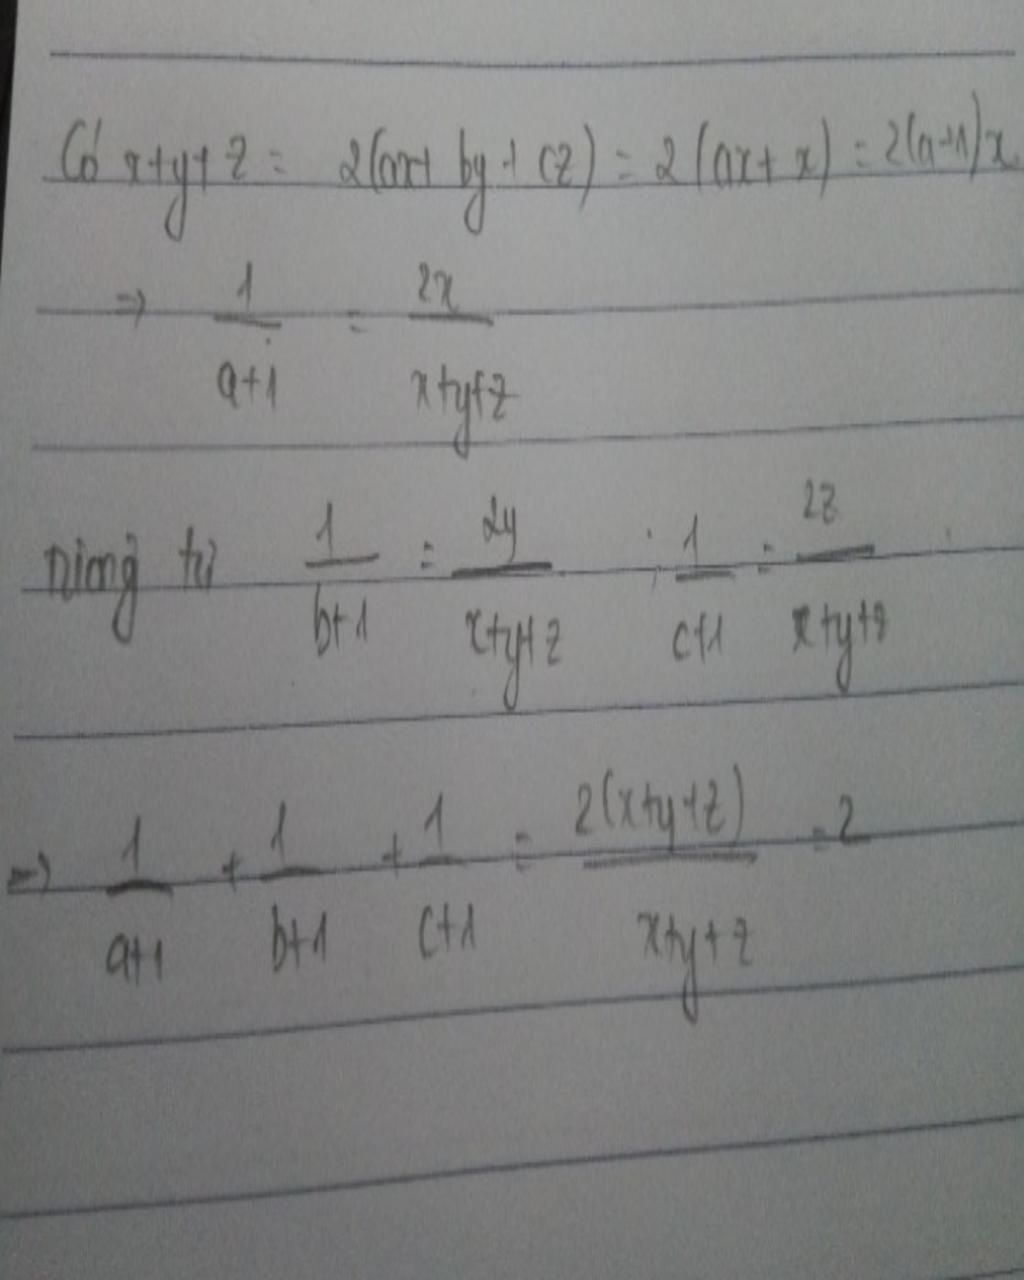 Có x+y+z = 2(ax+by+cz) = 2(ax+x) = 2(a+1)x
=> 1/(a+1) = 2x/(x+y+z)
tương tự 1/(b+1) = 2y/(x+y+z) ; 1/(c+1) = 2z/(x+y+z)
=> 1/(a+1) + 1/(b+1) + 1/(c+1) = 2(x+y+z)/(x+y+z) = 2